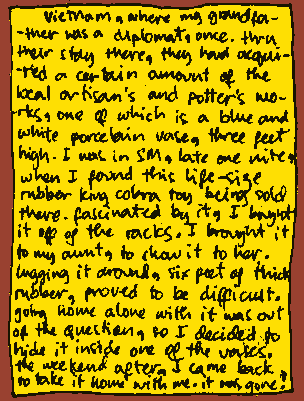 Vietnam, where my grandfa-
-ther was a diplomat, once. thru
their stay there, they had acqui-
-red a certain amount of the
local artisan's and potter's wo-
-rks, one of which is a blue and
white porcelain vase, three feet
high. I was in SM, late one nite,
when I found this life-size
rubber king cobra toy being sold
there. fascinated by it, I bought
it off of the racks. I brought it
to my aunt, to show it to her.
lugging it around, six feet of thick
rubber, proved to be difficult.
going home alone with it was out
of the question, so I decided to
hide it inside one of the vases.
the weekend after, I came back
to take it home with me. it was gone!